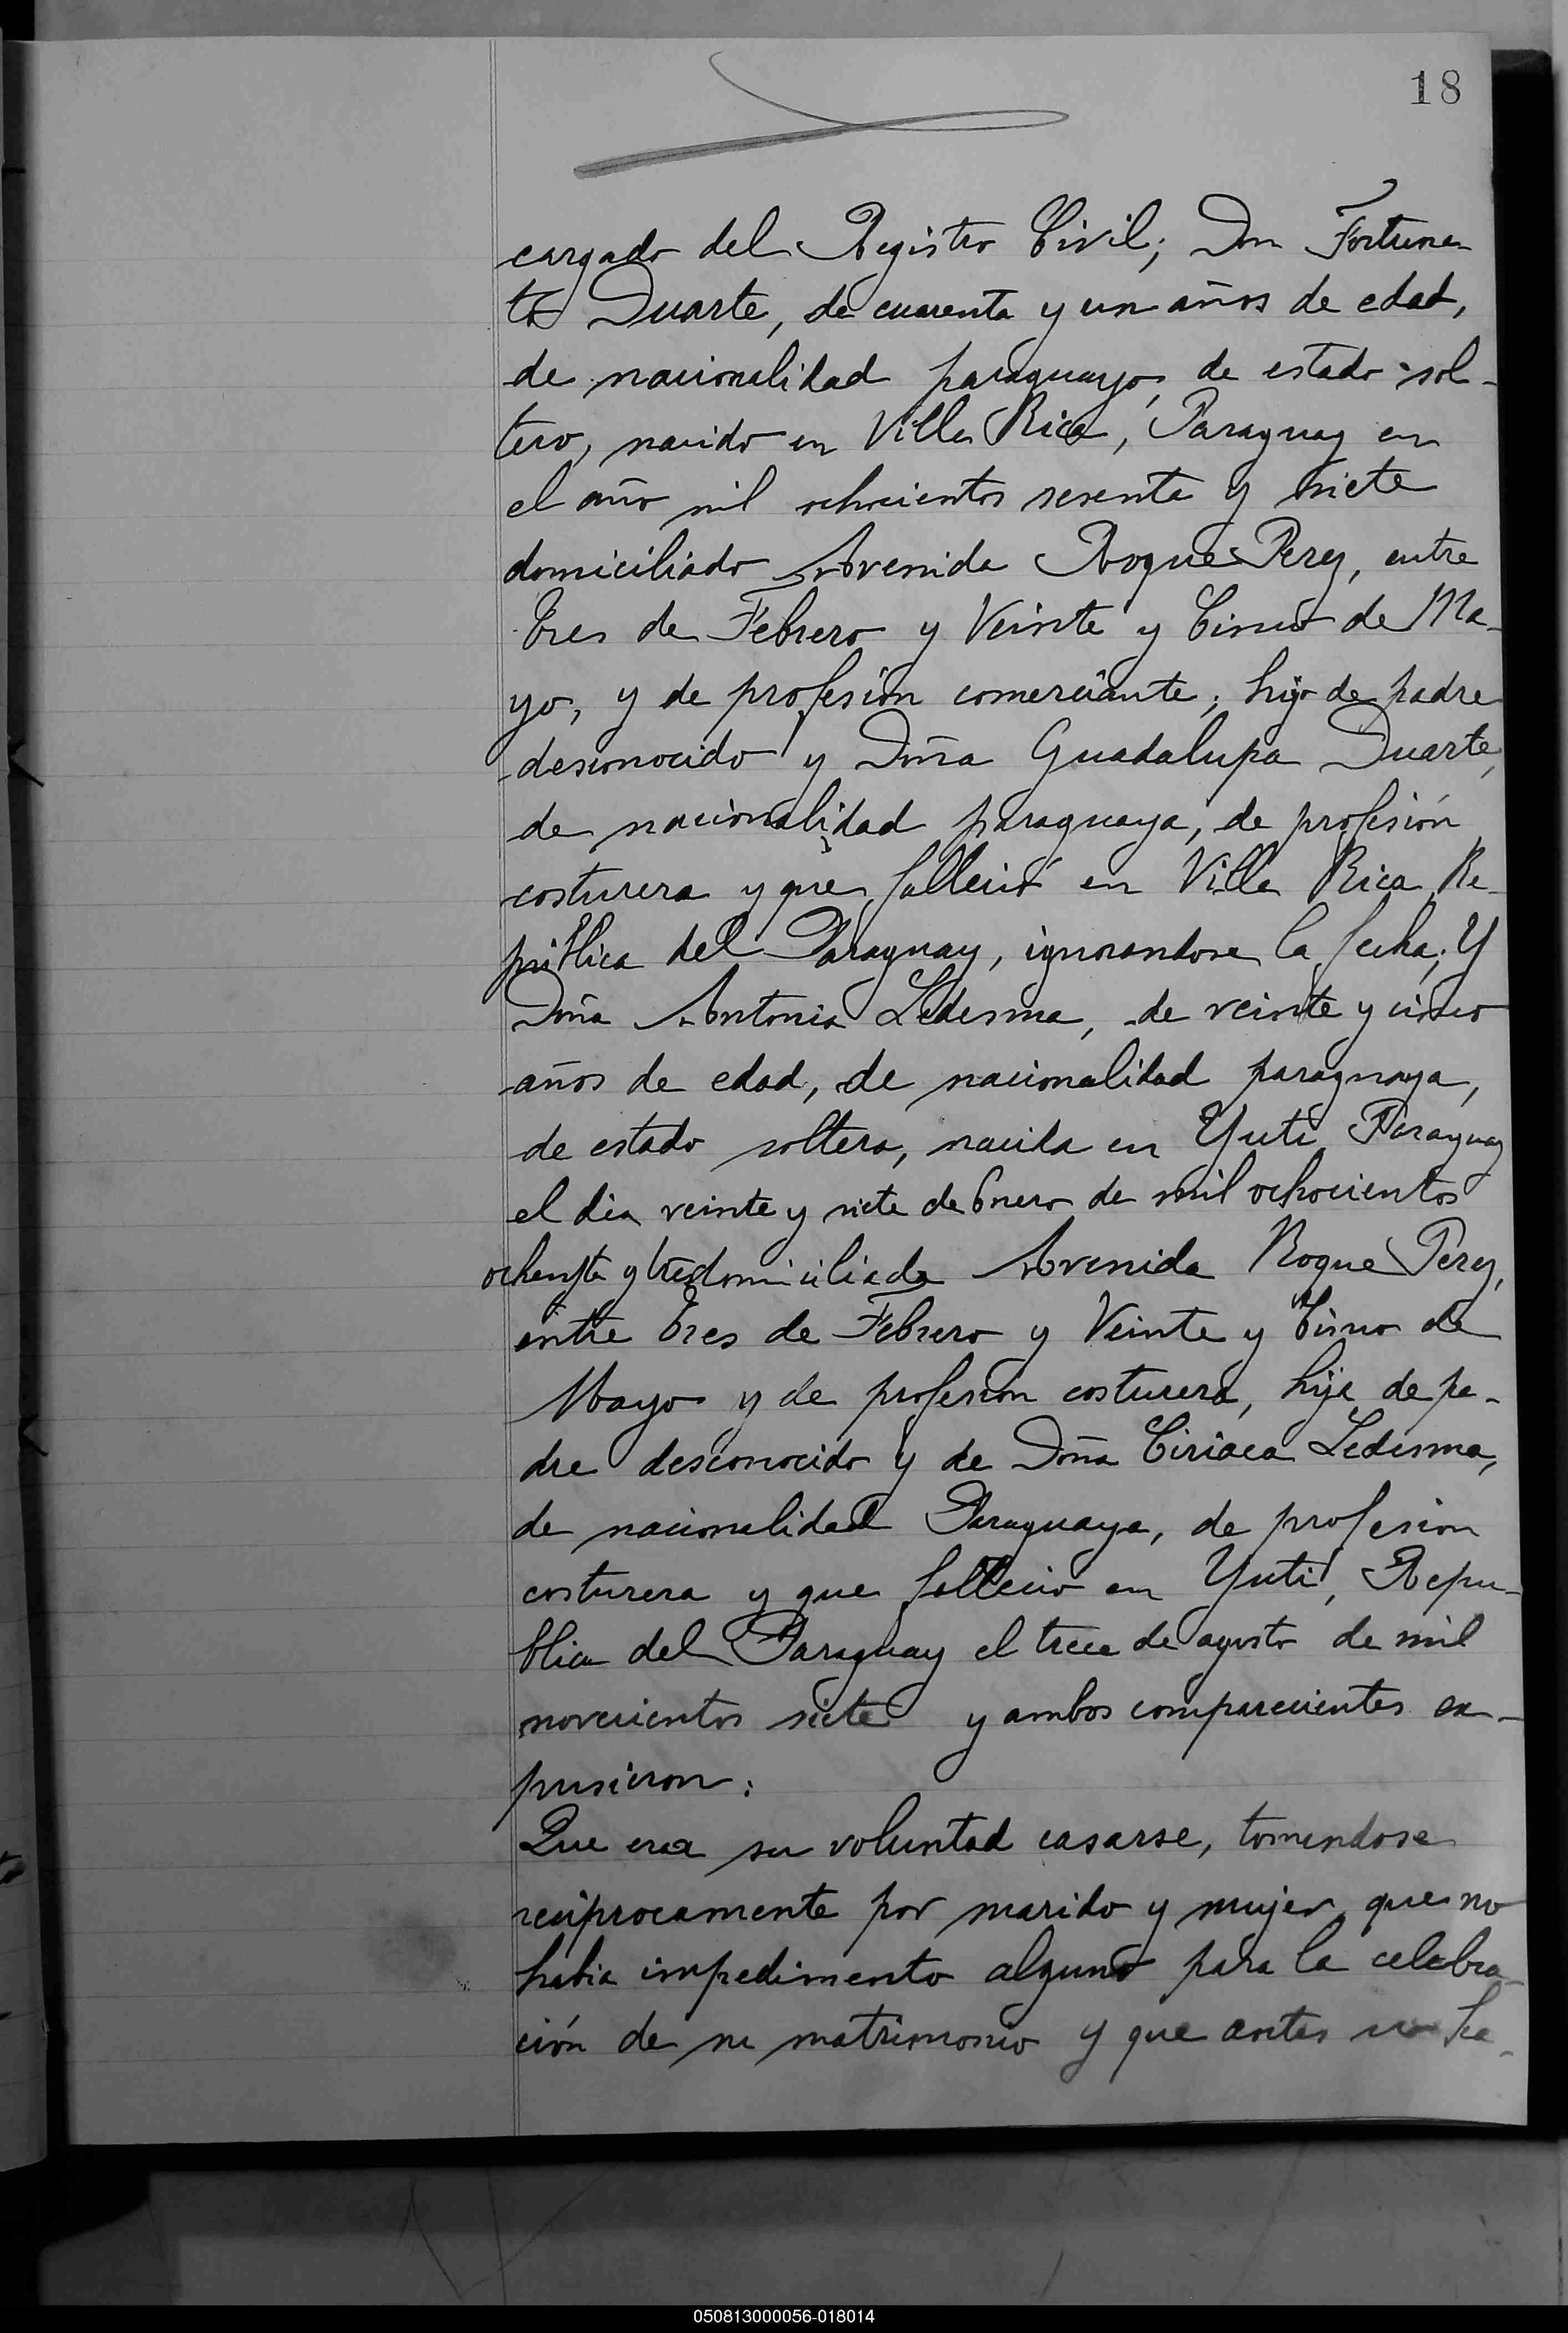 18
cargado del Registro Civil; Don Fortuna
to Duarte, de cuarenta y un años de edad,
de nacionalidad paraguayo, de estado sol-
tero, nacido en Villa Rica, Paraguay en
el año mil ochocientos sesenta y siete
domiciliado Avenida Roque Perez, entre
Tres de Febrero y Veinte y Cinco de Ma-
yo, y de profesión comerciante; hijo de padre
desconocido y Doña Guadalupa Duarte,
de nacionalidad paraguaya, de profesión
costurera y que falleció en Villa Rica Re-
pública del Paraguay, ignorandose la fecha; Y
Doña Antonia Ledesma, de veinte y cinco
años de edad, de nacionalidad paraguaya,
de estado soltera, nacida en Yuti Paraguay
el dia veinte y siete de Enero de mil ochocientos
ochenta y tres domiciliada Avenida Roque Perez,
entre Tres de Febrero y Veinte y Cinco de
Mayo y de profesion costurera, hija de pa-
dre desconocido y de Doña Ciriaca Ledesma,
de nacionalidad Paraguaya, de profesion
costurera y que fallecio en Yuti, Repu-
blica del Paraguay el trece de agosto de mil
novecientos siete y ambos comparecientes ex-
pusieron:
Que era su voluntad casarse, tomandose
reciprocamente por marido y mujer, que no
habia impedimento alguno para la celebra-
ción de su matrimonio y que antes no ha-
050813000056-018014